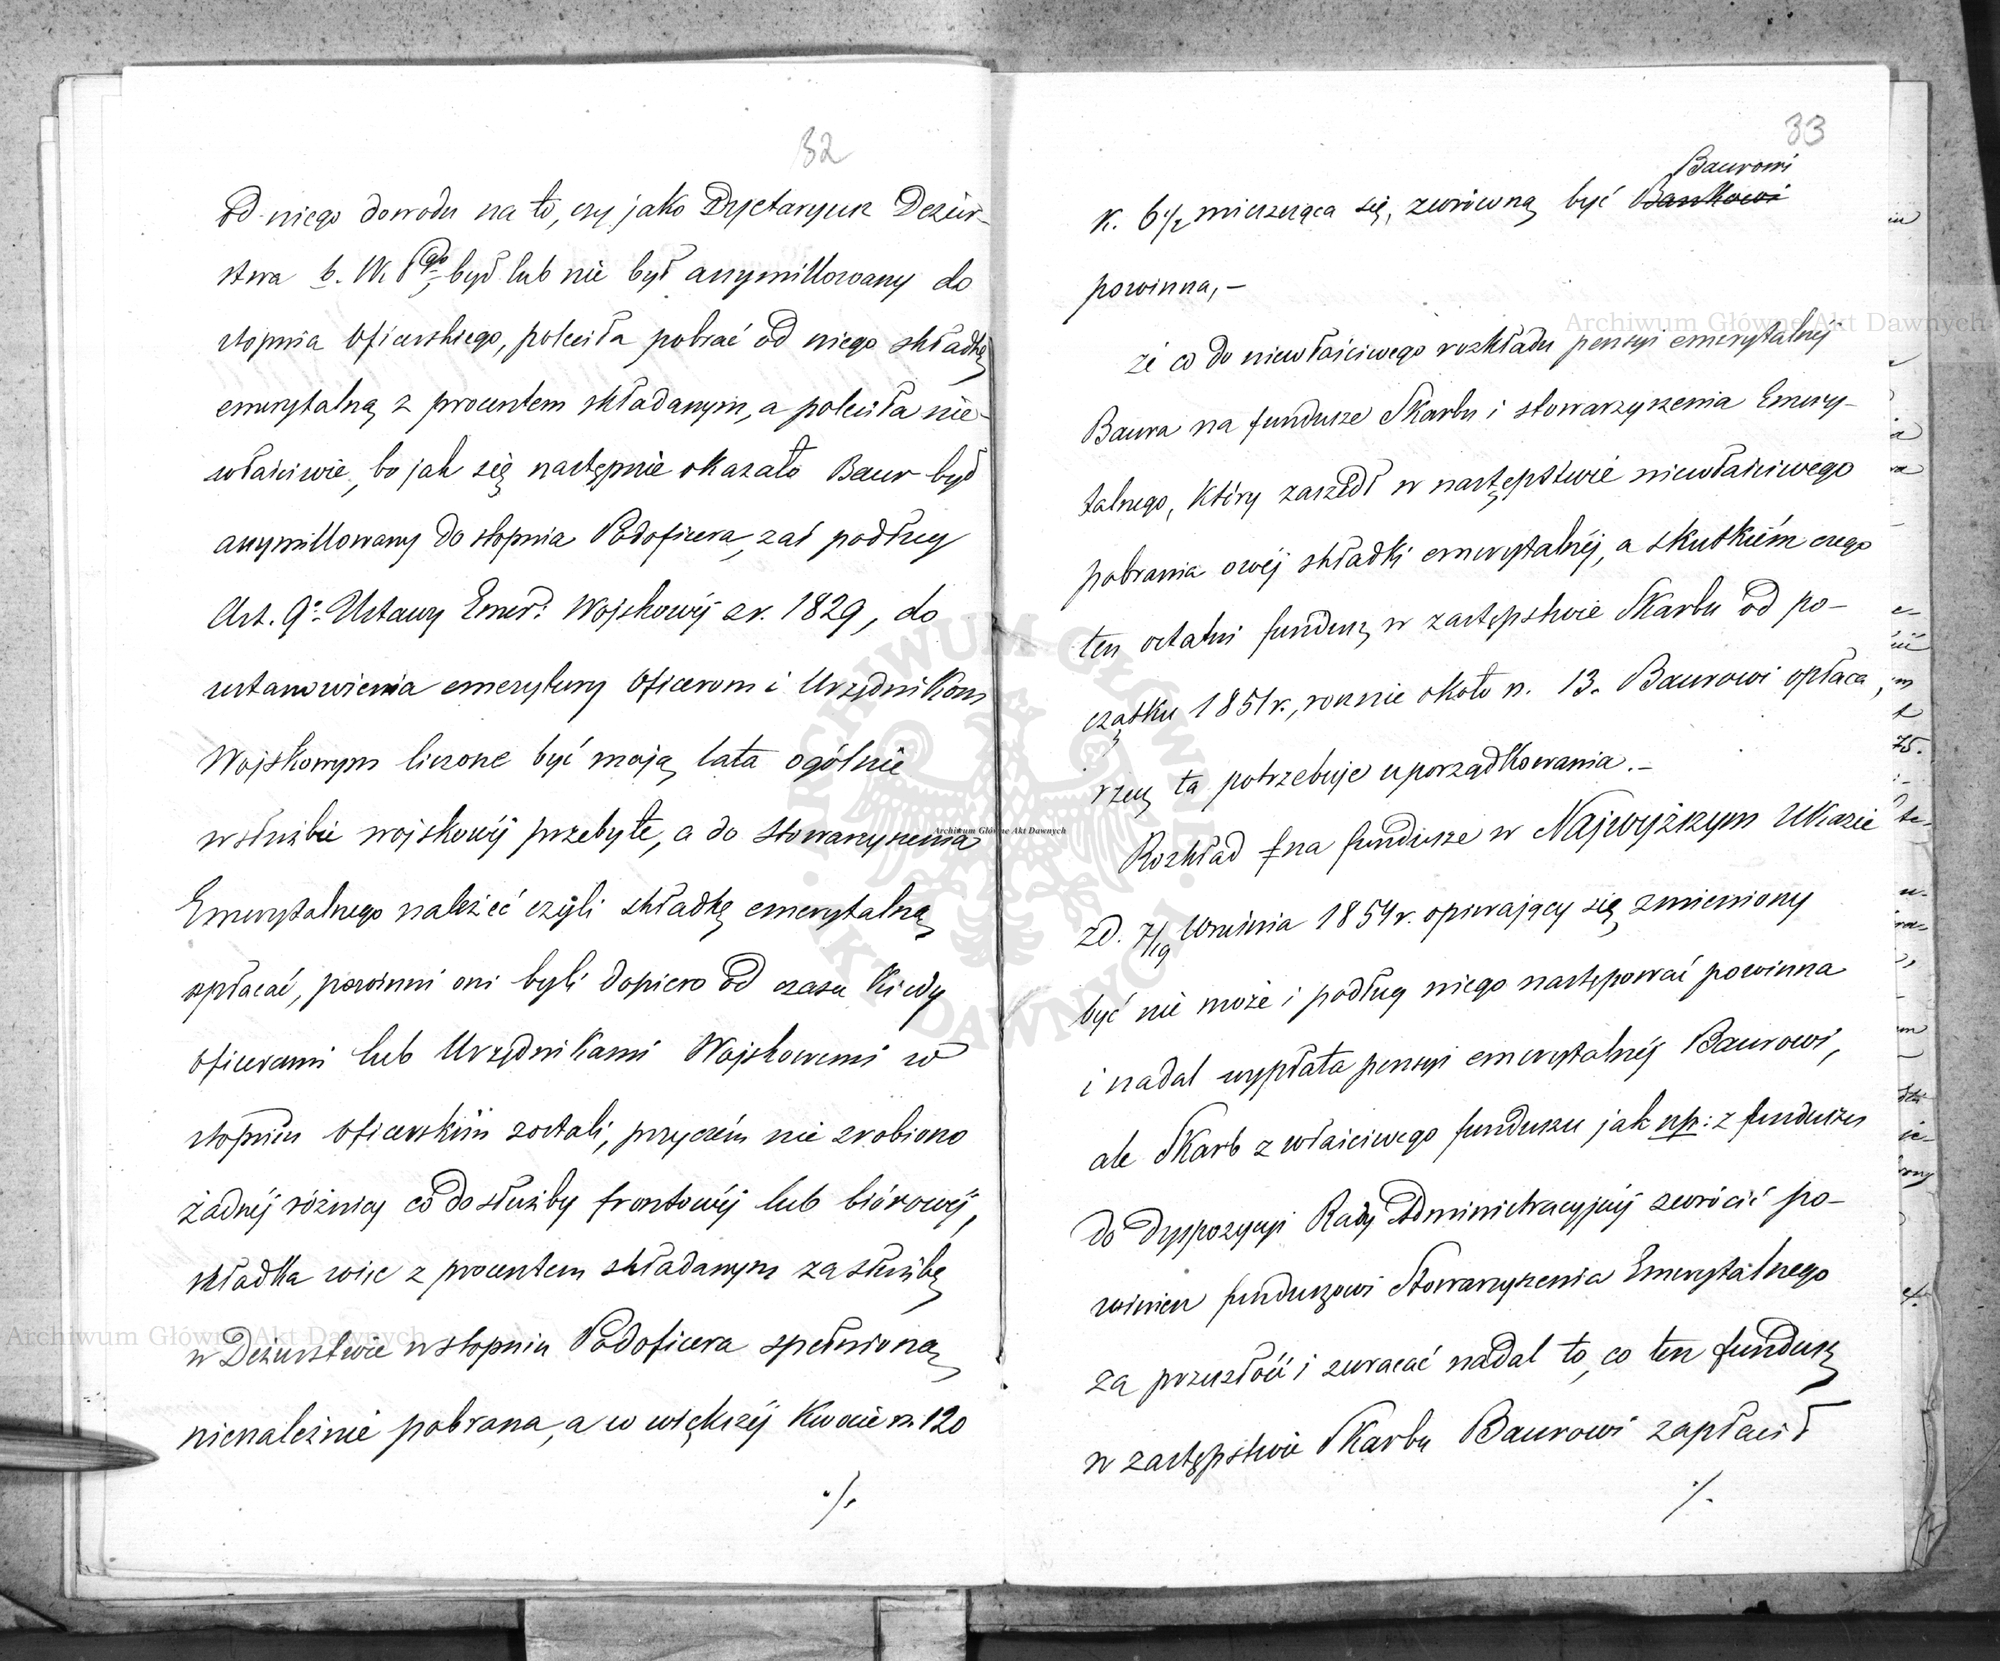 32
od niego dowodu na to, czy jako Dyetaryusz Dezur-
stwa b. W. Pgo, był lub nie był assymillowany do
stopnia Oficerskiego, poleciła pobrać od niego składkę
emerytalną z procentem składanym, a poleciła nie-
właściwie, bo jak się następnie okazało Baur był
assymillowany do stopnia Podoficera, zaś podług
Art. 9o Ustawy Emer: Wojskowéj z r. 1829, do
ustanowienia emerytury Oficerom i Urzędnikom
Wojskowym liczone być mają lata ogólnie
w służbie wojskowéj przebyte, a do Stowarzyszenia
Emerytalnego należeć czyli składkę emerytalną
opłacać, powinni oni byli dopiero od czasu kiedy
Oficerami lub Urzędnikami Wojskowemi w
stopniu Oficerskim zostali, przyczém nie zrobiono
żadnéj różnicy co do służby frontowéj lub biórowéj,
składka więc z procentem składanym za służbę
w Dezurstwie w stopniu Podoficera spełnioną
nienależnie pobrana, a w większéj kwocie rs. 120
./.
33
k. 6½ mieszcząca się, zwróconą być Bankowi
Baurowi
powinna, —
że co do niewłaściwego rozkładu pensyi emerytalnéj
Baura na fundusze Skarbu i stowarzyszenia Emery-
talnego, który zaszedł w następstwie niewłaściwego
pobrania owéj składki emerytalnéj, a skutkiém czego
ten ostatni fundusz w zastępstwie Skarbu od po-
czątku 1851 r., rocznie około rs. 13. Baurowi opłaca,
rzecz ta potrzebuje uporządkowania. —
Rozkład na fundusze w Najwyższym Ukazie
z d. 7/19 Września 1854 r. opierający się zmieniony
być nie może i podług niego następować powinna
i nadal wypłata pensyi emerytalnéj Baurowi,
ale Skarb z właściwego funduszu jak np: z funduszu
do dyspozycyi Rady Administracyjnéj zwrócić po-
winien funduszowi Stowarzyszenia Emerytalnego
za przeszłość i zwracać nadal to, co ten fundusz
w zastępstwie Skarbu Baurowi zapłacił
./.